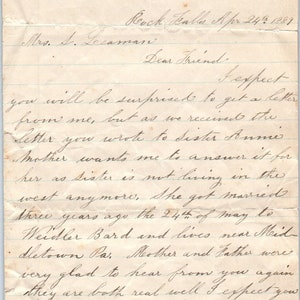 Rock Falls Apr 24th 1889
Mrs. S. Leaman
Dear Friend.
I expect
you will be surprised to get a letter
from me, but as we received the
letter you wrote to Sister Annie
Mother wants me to answer it for
her as sister is not living in the
west anymore. She got married
three years ago the 24th of may to
Bard and lives near Mid-
dletown Pa. Mother and Father were
very glad to hear from you again
they are both real well I expect you